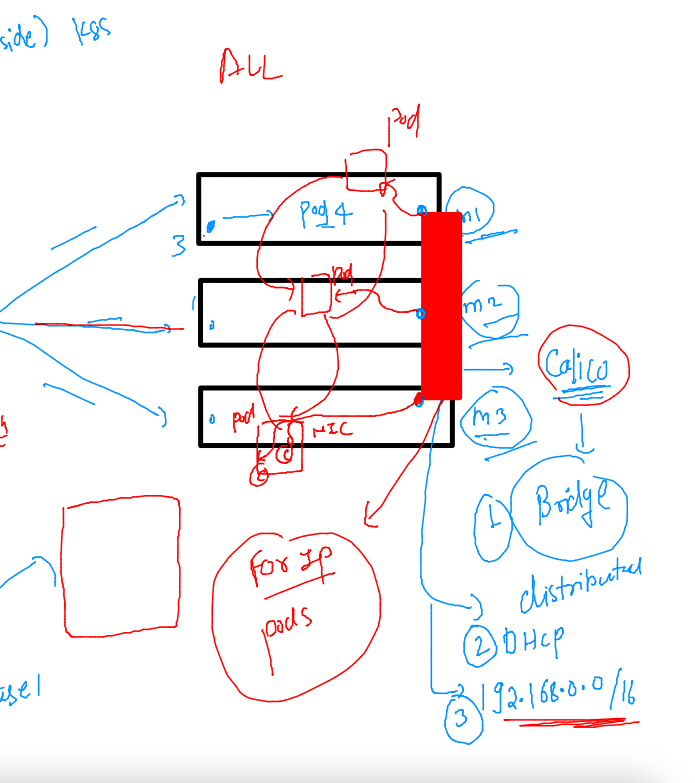 side) k8s
ALL
pod
pod 4
m1
3
pod
m2
Calico
pod
NIC
m3
1 Bridge
distributed
For IP
pods
2 DHCP
3 192.168.0.0/16